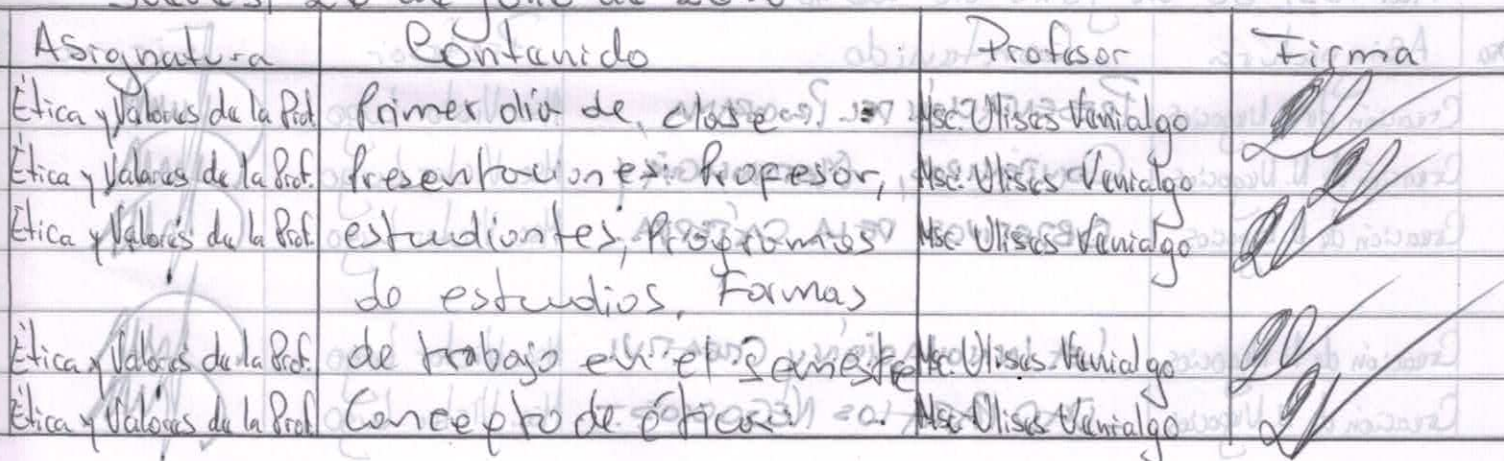 Asignatura Contenido Profesor Firma
Ética y Valores de la Prof. Primer día de clase Msc. Ulises Venialgo
Ética y Valores de la Prof. Presentaciones: Profesor, Msc. Ulises Venialgo
Ética y Valores de la Prof. estudiantes, Programas Msc. Ulises Venialgo
de estudios, Formas
Ética y Valores de la Prof. de trabajo en el semestre Msc. Ulises Venialgo
Ética y Valores de la Prof. Concepto de ética. Msc. Ulises Venialgo